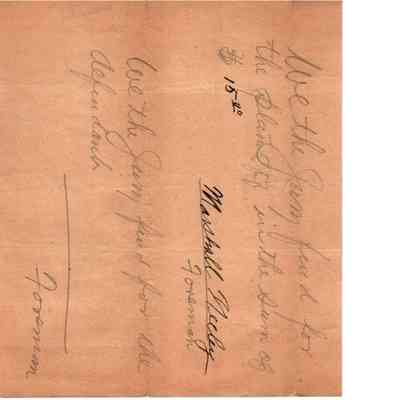 We the Jury find for
the Plaintiff in the sum of
$ 15.00
Marshall Neely
Foreman
We the Jury find for the
defendant
Foreman